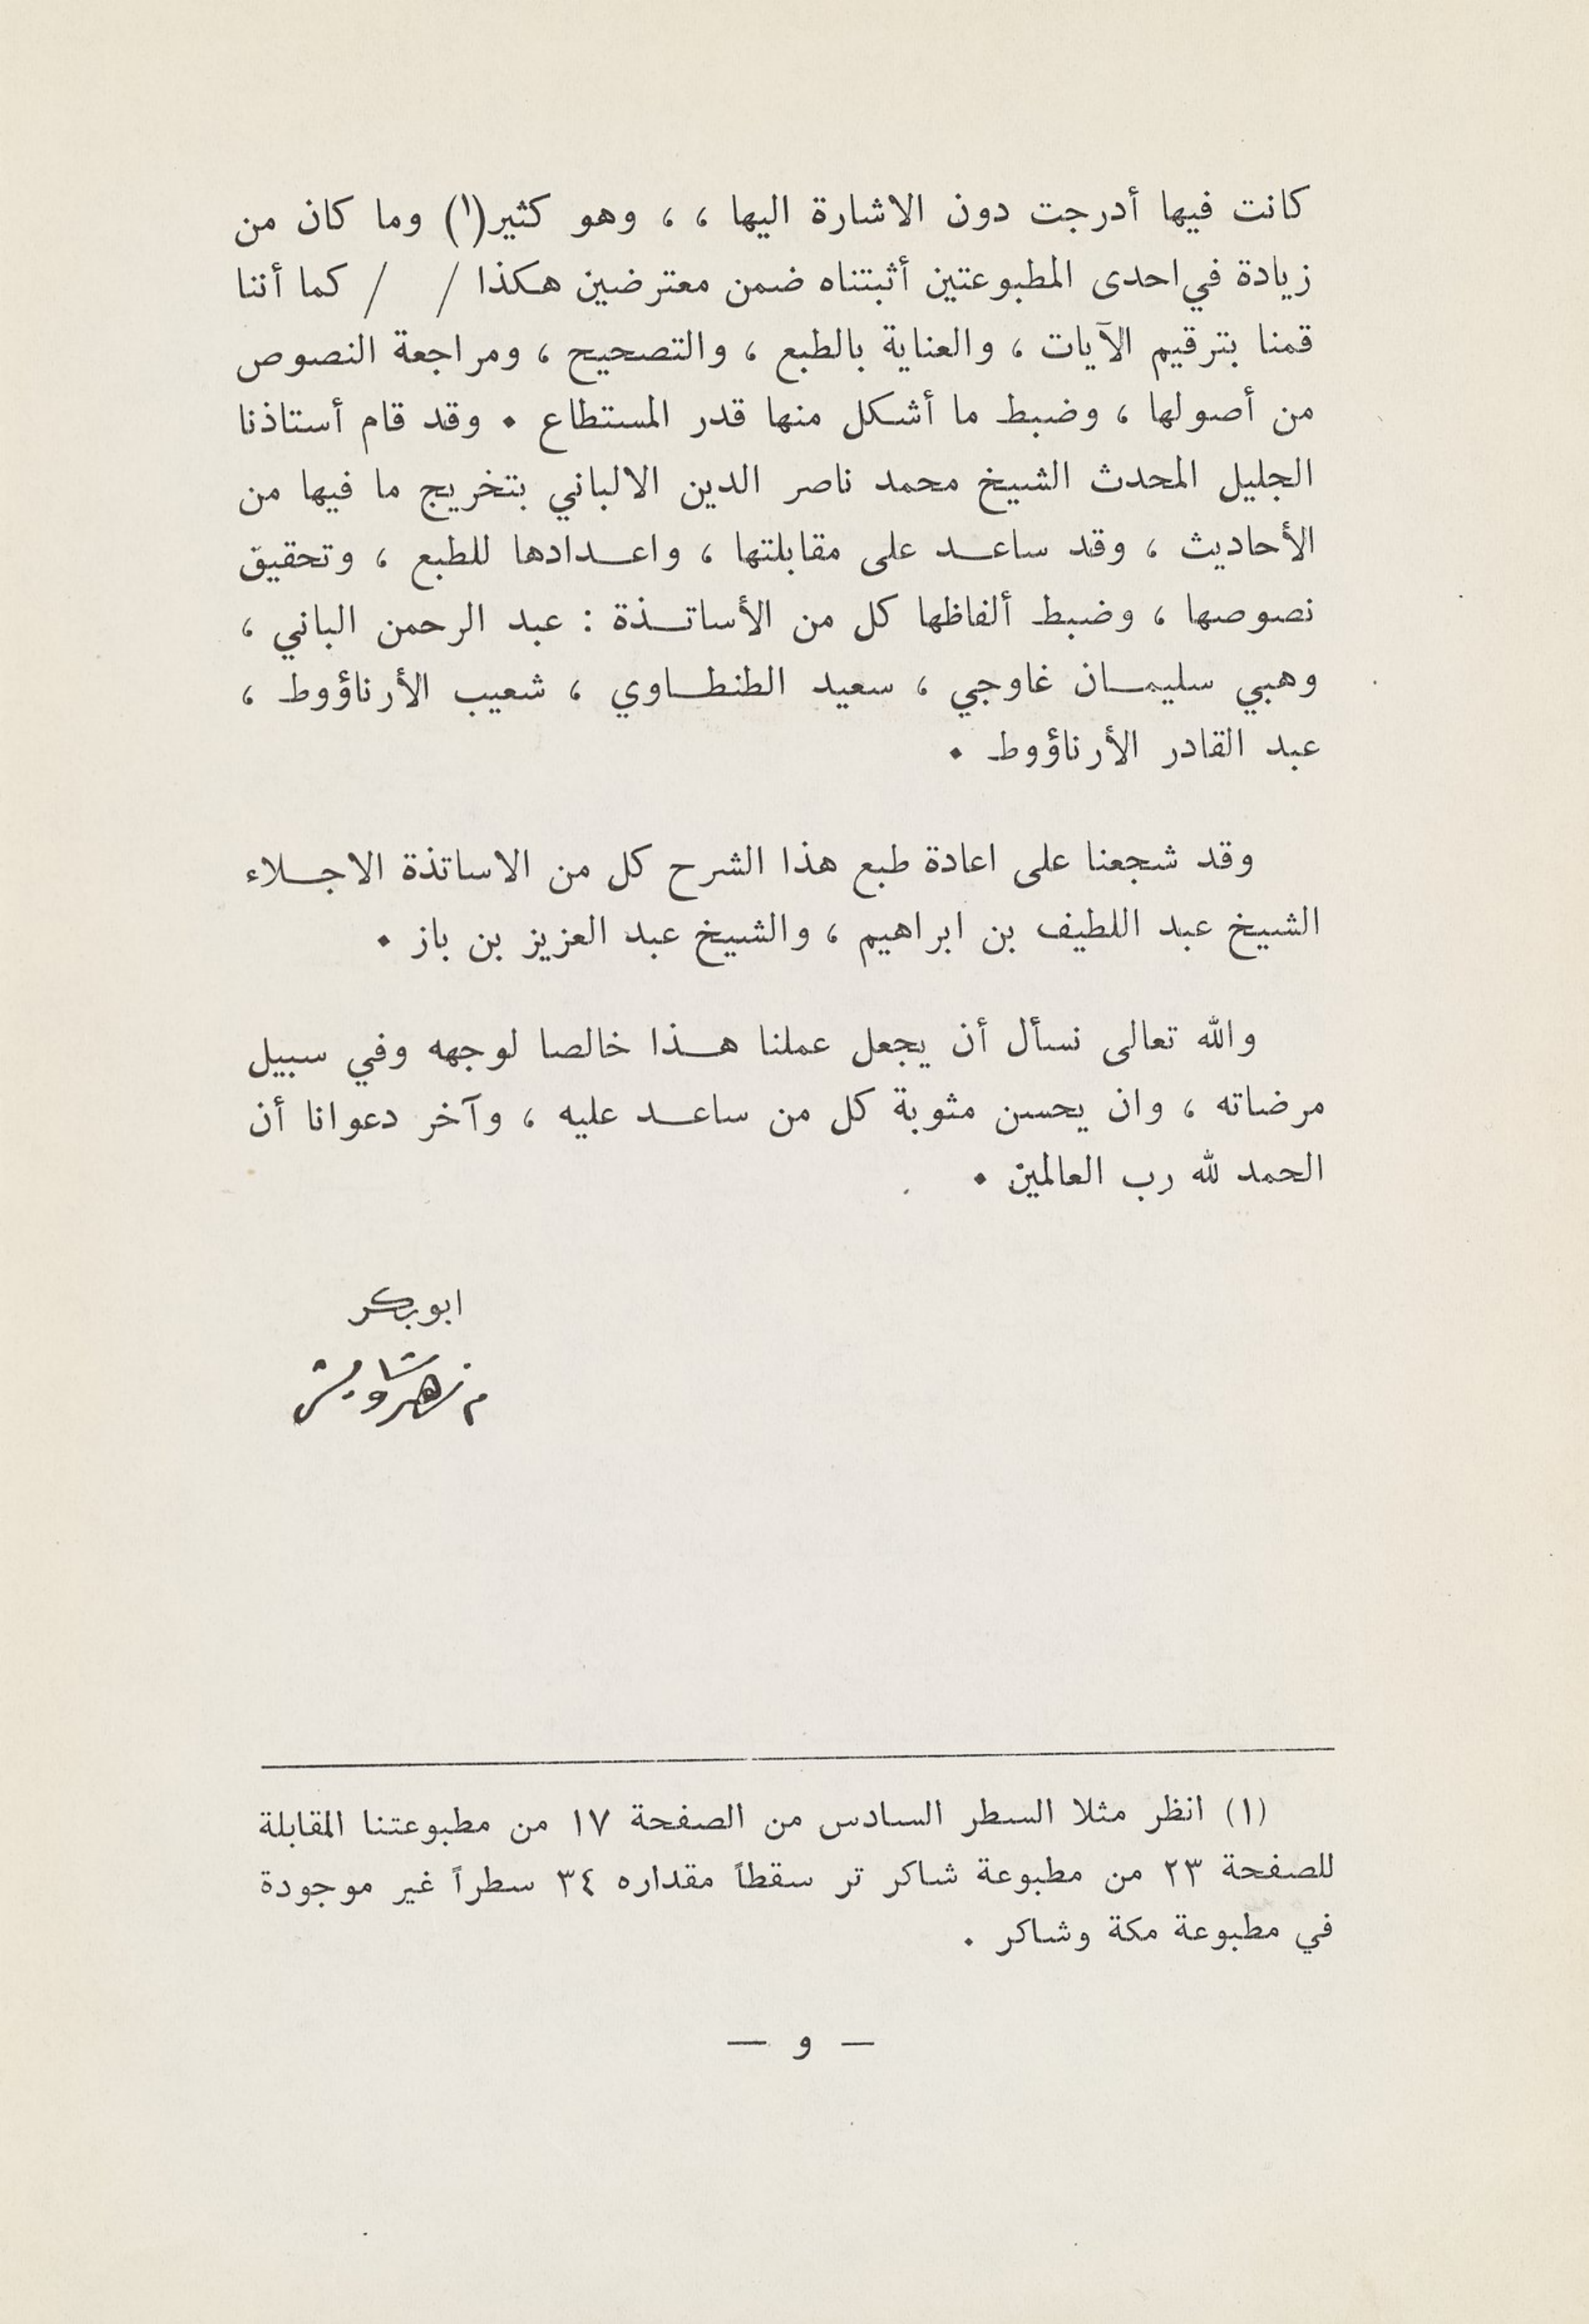 كانت فيها أدرجت دون الاشارة اليها ، ، وهو كثير(١) وما كان من
زيادة في احدى المطبوعتين أثبتناه ضمن معترضين هكذا / / كما أننا
قمنا بترقيم الآيات ، والعناية بالطبع ، والتصحيح ، ومراجعة النصوص
من أصولها ، وضبط ما أشكل منها قدر المستطاع . وقد قام أستاذنا
الجليل المحدث الشيخ محمد ناصر الدين الالباني بتخريج ما فيها من
الأحاديث ، وقد ساعد على مقابلتها ، واعدادها للطبع ، وتحقيق
نصوصها ، وضبط ألفاظها كل من الأساتذة : عبد الرحمن الباني ،
وهبي سليمان غاوجي ، سعيد الطنطاوي ، شعيب الأرناؤوط ،
عبد القادر الأرناؤوط .
وقد شجعنا على اعادة طبع هذا الشرح كل من الاساتذة الاجلاء
الشيخ عبد اللطيف بن ابراهيم ، والشيخ عبد العزيز بن باز .
والله تعالى نسأل أن يجعل عملنا هذا خالصا لوجهه وفي سبيل
مرضاته ، وان يحسن مثوبة كل من ساعد عليه ، وآخر دعوانا أن
الحمد لله رب العالمين .
ابو بكر
زهير شاويش
(١) انظر مثلا السطر السادس من الصفحة ١٧ من مطبوعتنا المقابلة
للصفحة ٢٣ من مطبوعة شاكر تر سقطاً مقداره ٣٤ سطراً غير موجودة
في مطبوعة مكة وشاكر .
— و —